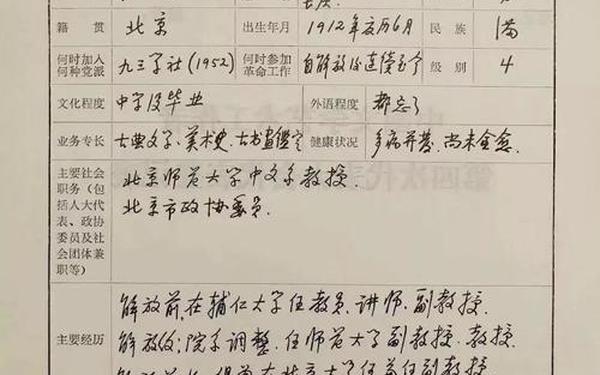 籍 贯 北京 出生年月 1912年农历6月 民 族 满
何时加入何种党派 九三学社(1952) 何时参加革命工作 自解放后连续至今 级 别 4
文化程度 中学没毕业 外语程度 都忘了
业务专长 古典文学、美术史、古书画鉴定 健康状况 多病并发,尚未全愈.
主要社会
职务(包
括人大代
表、政协
委员及社
会团体兼
职等)
北京师范大学中文系教授.
北京市政协委员.
主要经历
解放前,在辅仁大学任教员、讲师、副教授.
解放后;院系调整,任师范大学副教授、教授.